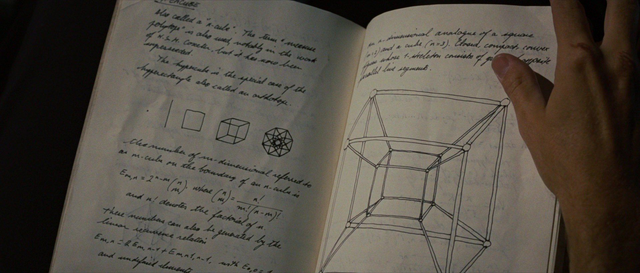 also called a "n-cube". The term "measure
polytope" is also used, notably in the work
of H.S.M. Coxeter, but it has now been
superseded.
The hypercube is the special case of the
hyperrectangle also called an orthotope.
Also number of m-dimensional referred to
as m-cube on the boundary of an n-cube is
E m,n = 2^n-m (n m) where (n m) = n! / m!(n-m)!
and n! denotes the factorial of n
These numbers can also be generated by the
linear recurrence relation
and undefined elements
an n-dimensional analogue of a square
(n=2) and a cube (n=3). Closed, compact, convex
figure whose 1-skeleton consists of
parallel line segment.